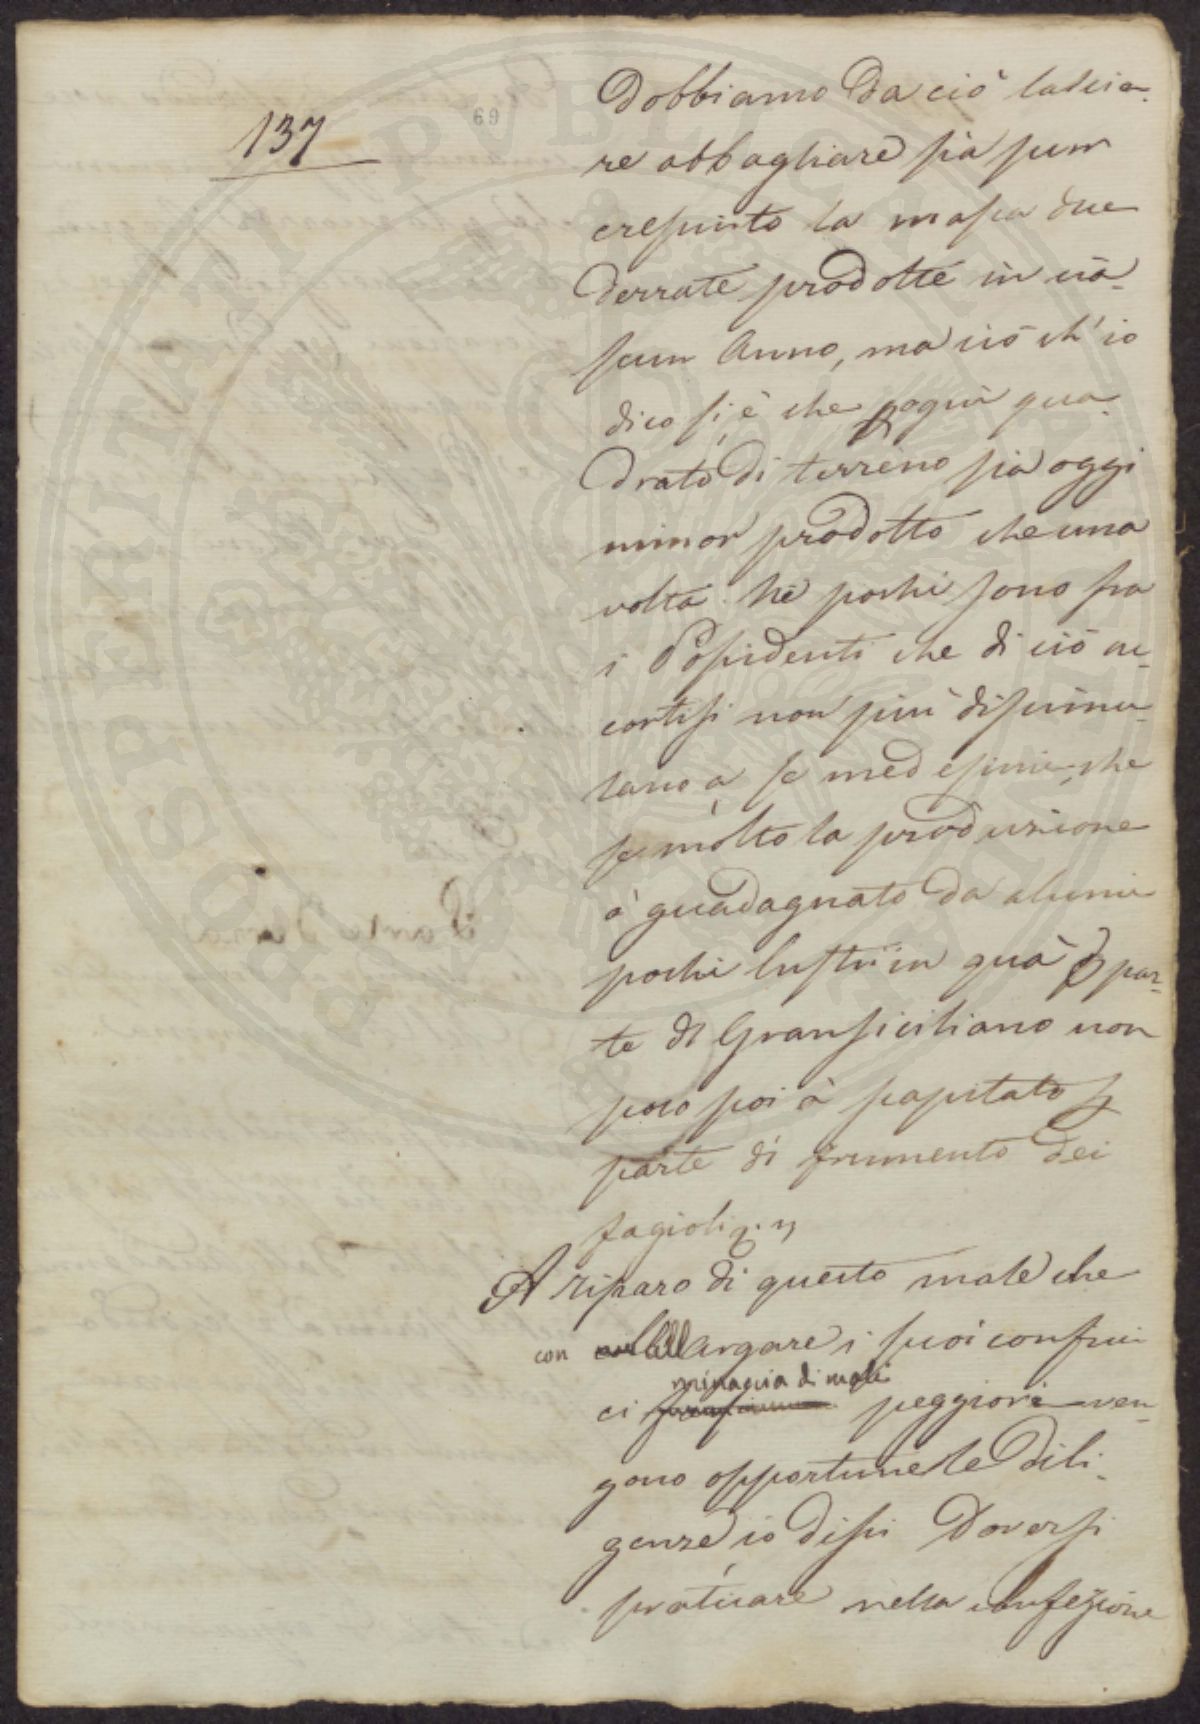 137
69
Dobbiamo da ciò lascia-
re abbagliare sia pur
cresciuto la massa due
derrate prodotte in cia-
scun Anno, ma ciò ch'io
dico si è che ogni qua-
drato di terreno sia oggi
minor prodotto che una
volta. Nè pochi sono fra
i Possidenti che di ciò ac-
cortisi non più dissimu-
lano a se medesimi, che
se molto la produzione
à guadagnato da alcuni
pochi lustri in quà par-
te di Gransiciliano non
poco poi à scapitato p
parte di frumento dei
fagioli
A riparo di questo male che
con allargare i suoi confini
ci minaccia di mali peggiori ven-
gono opportune le dili-
genze io dissi Doversi
praticare nella confezione